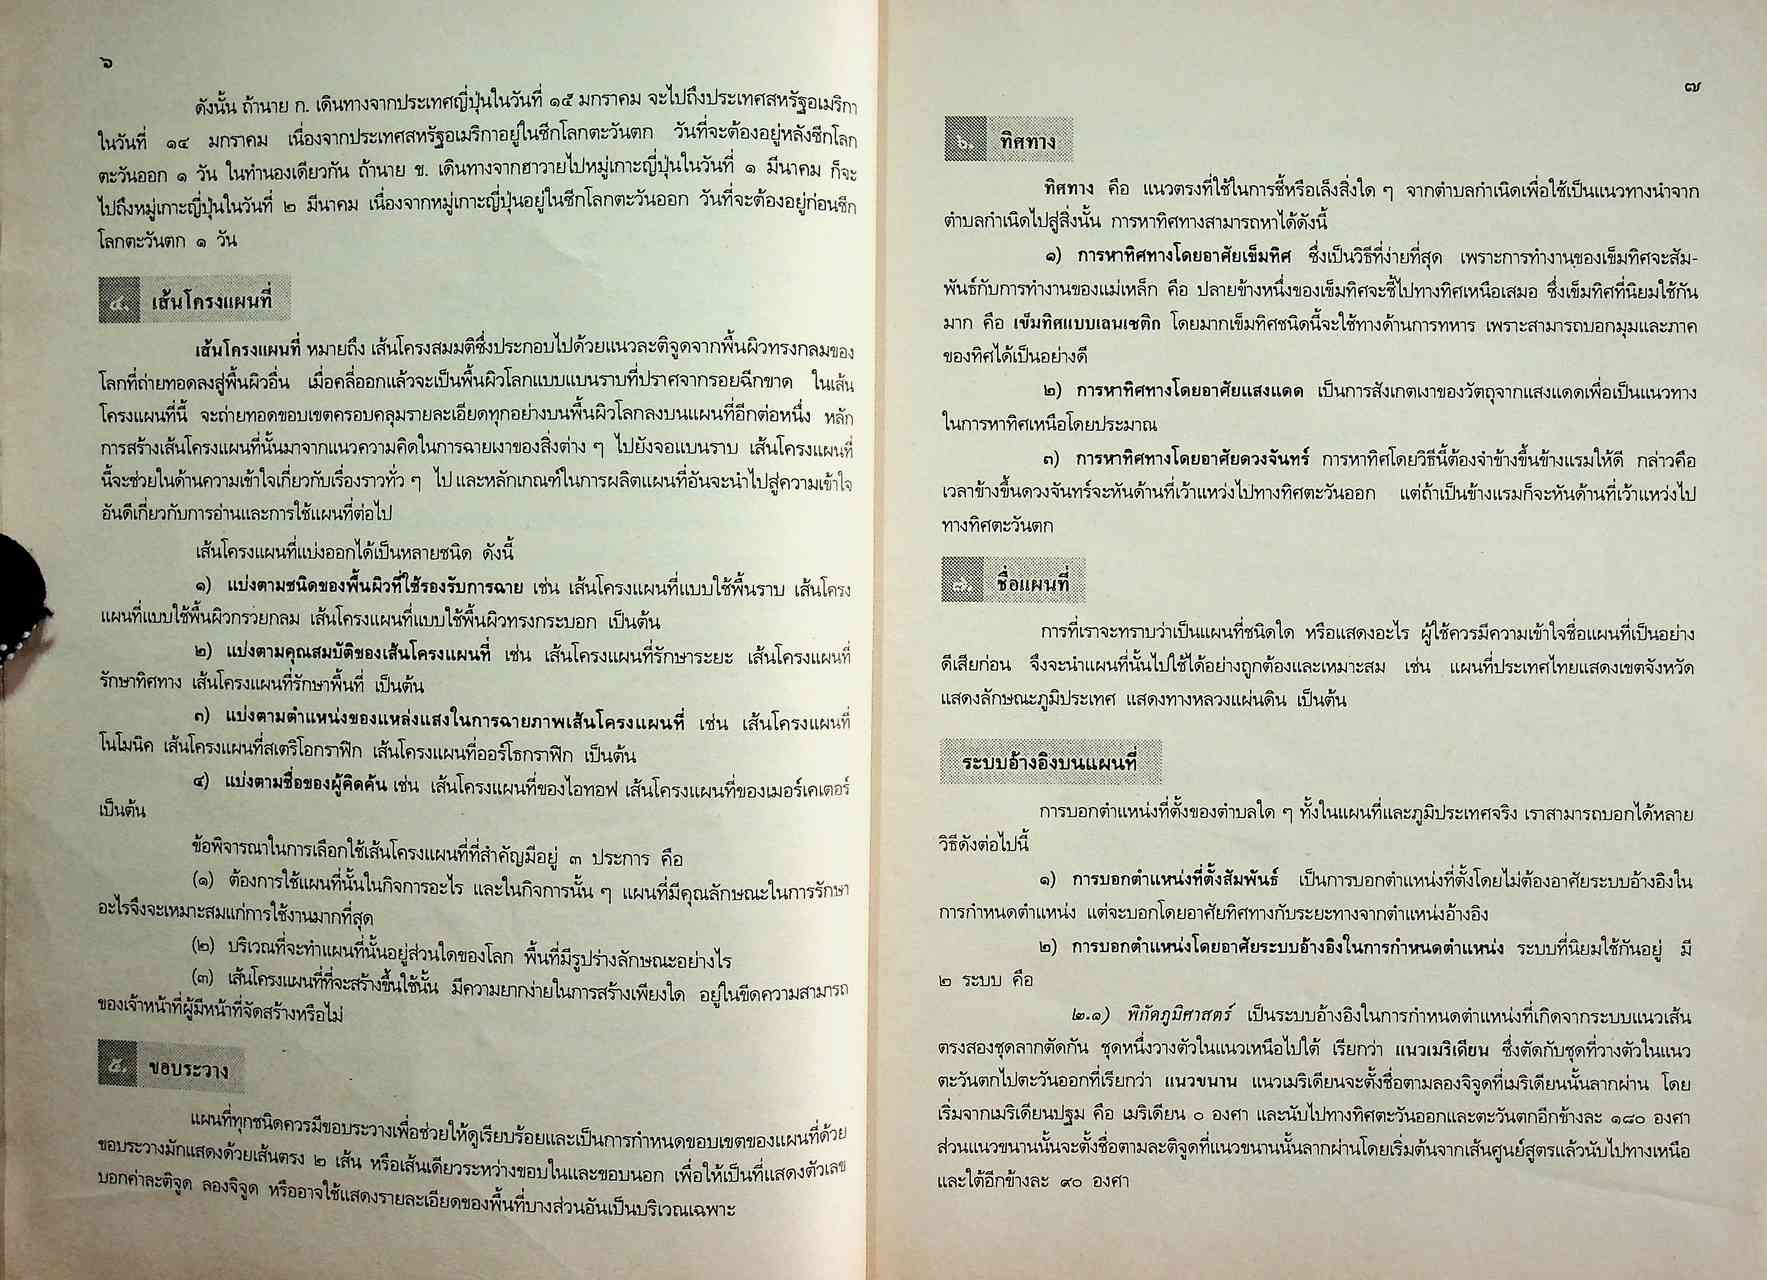 ๖
ดังนั้น ถ้านาย ก. เดินทางจากประเทศญี่ปุ่นในวันที่ ๑๕ มกราคม จะไปถึงประเทศสหรัฐอเมริกา
ในวันที่ ๑๔ มกราคม เนื่องจากประเทศสหรัฐอเมริกาอยู่ในซีกโลกตะวันตก วันที่จะต้องอยู่หลังซีกโลก
ตะวันออก ๑ วัน ในทำนองเดียวกัน ถ้านาย ข. เดินทางจากฮาวายไปหมู่เกาะญี่ปุ่นในวันที่ ๑ มีนาคม ก็จะ
ไปถึงหมู่เกาะญี่ปุ่นในวันที่ ๒ มีนาคม เนื่องจากหมู่เกาะญี่ปุ่นอยู่ในซีกโลกตะวันออก วันที่จะต้องอยู่ก่อนซีก
โลกตะวันตก ๑ วัน
๔. เส้นโครงแผนที่
เส้นโครงแผนที่ หมายถึง เส้นโครงสมมติซึ่งประกอบไปด้วยแนวละติจูดจากพื้นผิวทรงกลมของ
โลกที่ถ่ายทอดลงสู่พื้นผิวอื่น เมื่อคลี่ออกแล้วจะเป็นพื้นผิวโลกแบบแบนราบที่ปราศจากรอยฉีกขาด ในเส้น
โครงแผนที่นี้ จะถ่ายทอดขอบเขตครอบคลุมรายละเอียดทุกอย่างบนพื้นผิวโลกลงบนแผนที่อีกต่อหนึ่ง หลัก
การสร้างเส้นโครงแผนที่นั้นมาจากแนวความคิดในการฉายเงาของสิ่งต่าง ๆ ไปยังจอแบนราบ เส้นโครงแผนที่
นี้จะช่วยในด้านความเข้าใจเกี่ยวกับเรื่องราวทั่ว ๆ ไป และหลักเกณฑ์ในการผลิตแผนที่อันจะนำไปสู่ความเข้าใจ
อันดีเกี่ยวกับการอ่านและการใช้แผนที่ต่อไป
เส้นโครงแผนที่แบ่งออกได้เป็นหลายชนิด ดังนี้
๑) แบ่งตามชนิดของพื้นผิวที่ใช้รองรับการฉาย เช่น เส้นโครงแผนที่แบบใช้พื้นราบ เส้นโครง
แผนที่แบบใช้พื้นผิวกรวยกลม เส้นโครงแผนที่แบบใช้พื้นผิวทรงกระบอก เป็นต้น
๒) แบ่งตามคุณสมบัติของเส้นโครงแผนที่ เช่น เส้นโครงแผนที่รักษาระยะ เส้นโครงแผนที่
รักษาทิศทาง เส้นโครงแผนที่รักษาพื้นที่ เป็นต้น
๓) แบ่งตามตำแหน่งของแหล่งแสงในการฉายภาพเส้นโครงแผนที่ เช่น เส้นโครงแผนที่
โนโมนิค เส้นโครงแผนที่สเตริโอกราฟิก เส้นโครงแผนที่ออร์โธกราฟิก เป็นต้น
๔) แบ่งตามชื่อของผู้คิดค้น เช่น เส้นโครงแผนที่ของไอทอฟ เส้นโครงแผนที่ของเมอร์เคเตอร์
เป็นต้น
ข้อพิจารณาในการเลือกใช้เส้นโครงแผนที่ที่สำคัญมีอยู่ ๓ ประการ คือ
(๑) ต้องการใช้แผนที่นั้นในกิจการอะไร และในกิจการนั้น ๆ แผนที่มีคุณลักษณะในการรักษา
อะไรจึงจะเหมาะสมแก่การใช้งานมากที่สุด
(๒) บริเวณที่จะทำแผนที่นั้นอยู่ส่วนใดของโลก พื้นที่มีรูปร่างลักษณะอย่างไร
(๓) เส้นโครงแผนที่ที่จะสร้างขึ้นใช้นั้น มีความยากง่ายในการสร้างเพียงใด อยู่ในขีดความสามารถ
ของเจ้าหน้าที่ผู้มีหน้าที่จัดสร้างหรือไม่
๕. ขอบระวาง
แผนที่ทุกชนิดควรมีขอบระวางเพื่อช่วยให้ดูเรียบร้อยและเป็นการกำหนดขอบเขตของแผนที่ด้วย
ขอบระวางมักแสดงด้วยเส้นตรง ๒ เส้น หรือเส้นเดียวระหว่างขอบในและขอบนอก เพื่อให้เป็นที่แสดงตัวเลข
บอกค่าละติจูด ลองจิจูด หรืออาจใช้แสดงรายละเอียดของพื้นที่บางส่วนอันเป็นบริเวณเฉพาะ
๗
๖. ทิศทาง
ทิศทาง คือ แนวตรงที่ใช้ในการชี้หรือเล็งสิ่งใด ๆ จากตำบลกำเนิดเพื่อใช้เป็นแนวทางนำจาก
ตำบลกำเนิดไปสู่สิ่งนั้น การหาทิศทางสามารถหาได้ดังนี้
๑) การหาทิศทางโดยอาศัยเข็มทิศ ซึ่งเป็นวิธีที่ง่ายที่สุด เพราะการทำงานของเข็มทิศจะสัม-
พันธ์กับการทำงานของแม่เหล็ก คือ ปลายข้างหนึ่งของเข็มทิศจะชี้ไปทางทิศเหนือเสมอ ซึ่งเข็มทิศที่นิยมใช้กัน
มาก คือ เข็มทิศแบบเลนเซติก โดยมากเข็มทิศชนิดนี้จะใช้ทางด้านการทหาร เพราะสามารถบอกมุมและภาค
ของทิศได้เป็นอย่างดี
๒) การหาทิศทางโดยอาศัยแสงแดด เป็นการสังเกตเงาของวัตถุจากแสงแดดเพื่อเป็นแนวทาง
ในการหาทิศเหนือโดยประมาณ
๓) การหาทิศทางโดยอาศัยดวงจันทร์ การหาทิศโดยวิธีนี้ต้องจำข้างขึ้นข้างแรมให้ดี กล่าวคือ
เวลาข้างขึ้นดวงจันทร์จะหันด้านที่เว้าแหว่งไปทางทิศตะวันออก แต่ถ้าเป็นข้างแรมก็จะหันด้านที่เว้าแหว่งไป
ทางทิศตะวันตก
๗. ชื่อแผนที่
การที่เราจะทราบว่าเป็นแผนที่ชนิดใด หรือแสดงอะไร ผู้ใช้ควรมีความเข้าใจชื่อแผนที่เป็นอย่าง
ดีเสียก่อน จึงจะนำแผนที่นั้นไปใช้ได้อย่างถูกต้องและเหมาะสม เช่น แผนที่ประเทศไทยแสดงเขตจังหวัด
แสดงลักษณะภูมิประเทศ แสดงทางหลวงแผ่นดิน เป็นต้น
ระบบอ้างอิงบนแผนที่
การบอกตำแหน่งที่ตั้งของตำบลใด ๆ ทั้งในแผนที่และภูมิประเทศจริง เราสามารถบอกได้หลาย
วิธีดังต่อไปนี้
๑) การบอกตำแหน่งที่ตั้งสัมพันธ์ เป็นการบอกตำแหน่งที่ตั้งโดยไม่ต้องอาศัยระบบอ้างอิงใน
การกำหนดตำแหน่ง แต่จะบอกโดยอาศัยทิศทางกับระยะทางจากตำแหน่งอ้างอิง
๒) การบอกตำแหน่งโดยอาศัยระบบอ้างอิงในการกำหนดตำแหน่ง ระบบที่นิยมใช้กันอยู่ มี
๒ ระบบ คือ
๒.๑) พิกัดภูมิศาสตร์ เป็นระบบอ้างอิงในการกำหนดตำแหน่งที่เกิดจากระบบแนวเส้น
ตรงสองชุดลากตัดกัน ชุดหนึ่งวางตัวในแนวเหนือไปใต้ เรียกว่า แนวเมริเดียน ซึ่งตัดกับชุดที่วางตัวในแนว
ตะวันตกไปตะวันออกที่เรียกว่า แนวขนาน แนวเมริเดียนจะตั้งชื่อตามลองจิจูดที่เมริเดียนนั้นลากผ่าน โดย
เริ่มจากเมริเดียนปฐม คือ เมริเดียน ๐ องศา และนับไปทางทิศตะวันออกและตะวันตกอีกข้างละ ๑๘๐ องศา
ส่วนแนวขนานนั้นจะตั้งชื่อตามละติจูดที่แนวขนานนั้นลากผ่านโดยเริ่มต้นจากเส้นศูนย์สูตรแล้วนับไปทางเหนือ
และใต้อีกข้างละ ๙๐ องศา